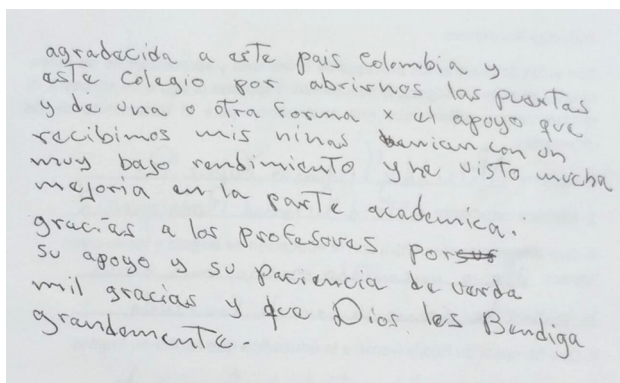 agradecida a este pais Colombia y
este Colegio por abrirnos las puertas
y de una o otra forma x el apoyo que
recibimos mis ninas venian con un
muy bajo rendimiento y he visto mucha
mejoria en la parte academica.
gracias a los profesores por sus
su apoyo y su paciencia de verda
mil gracias y que Dios les Bendiga
grandemente.